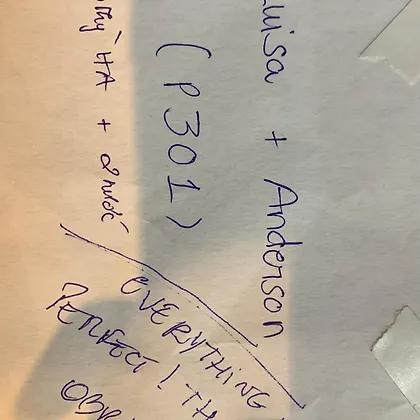 Luisa + Anderson
(P301)
HA + 2 nước
EVERYTHING
PERFECT! TH
OBR